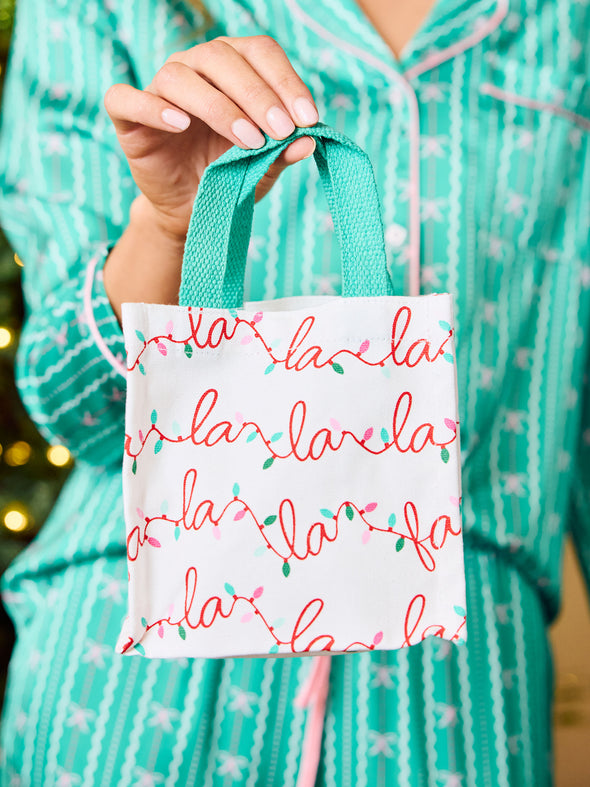 la la la
la la la
la la fa
la la la